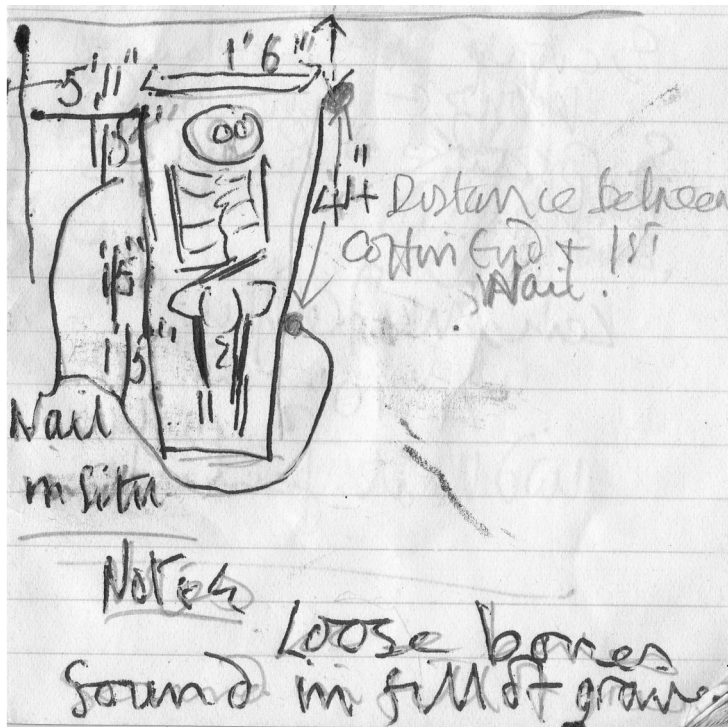 1' 6"
5' 11"
15"
44" Distance between
Coffin End + 1st
Nail.
15"
15"
Nail
in situ
Notes
Loose bones
found in fill of grave